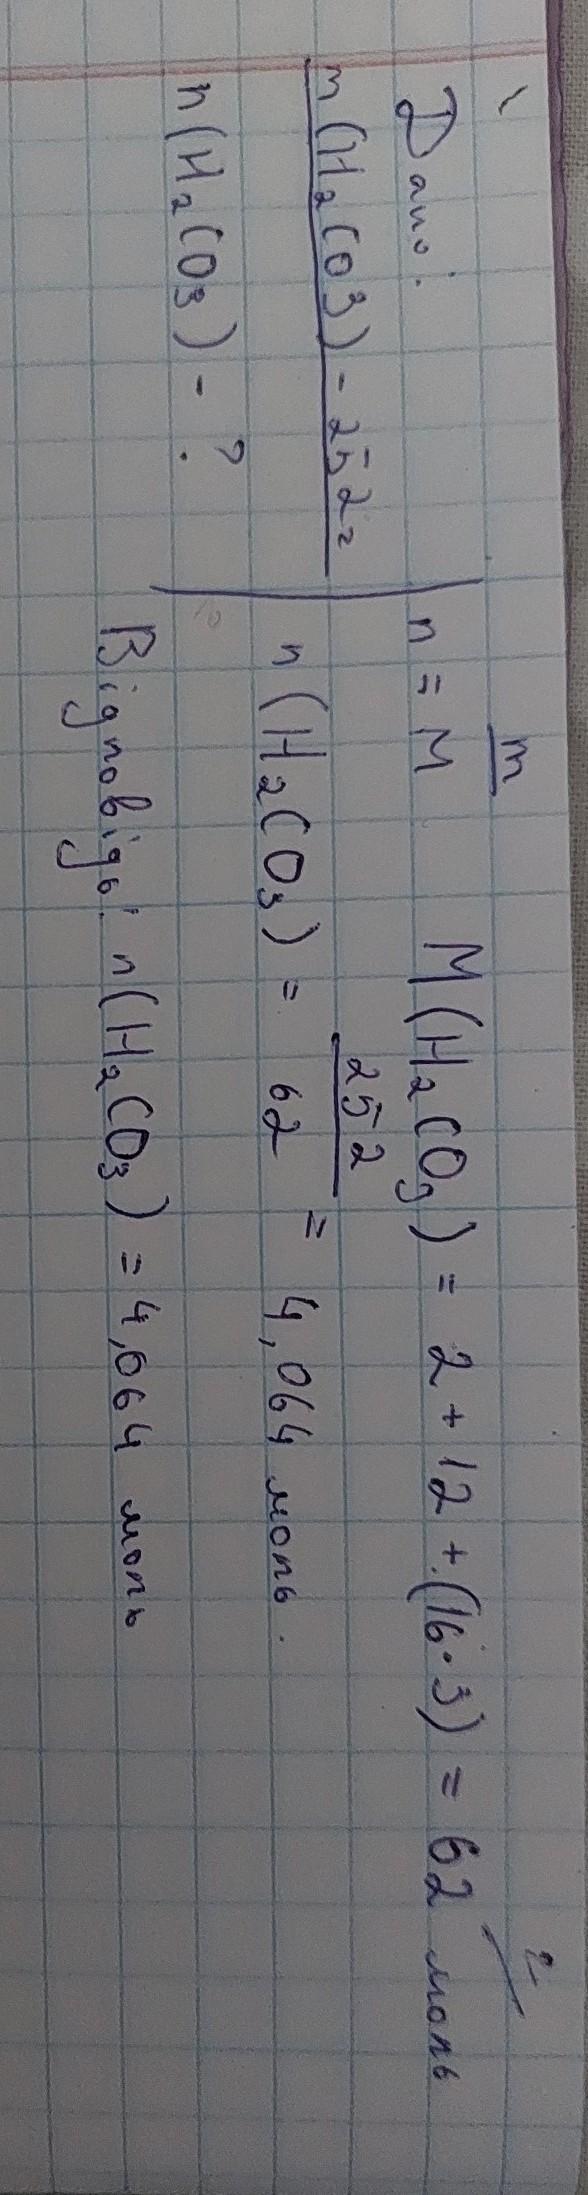 Дано:
m(H₂CO3) - 252г
n(H₂CO₃) - ?
n = m/M M(H₂CO₃) = 2 + 12 + (16·3) = 62 г/моль
n(H₂CO₃) = 252/62 = 4,064 моль.
Відповідь: n(H₂CO₃) = 4,064 моль